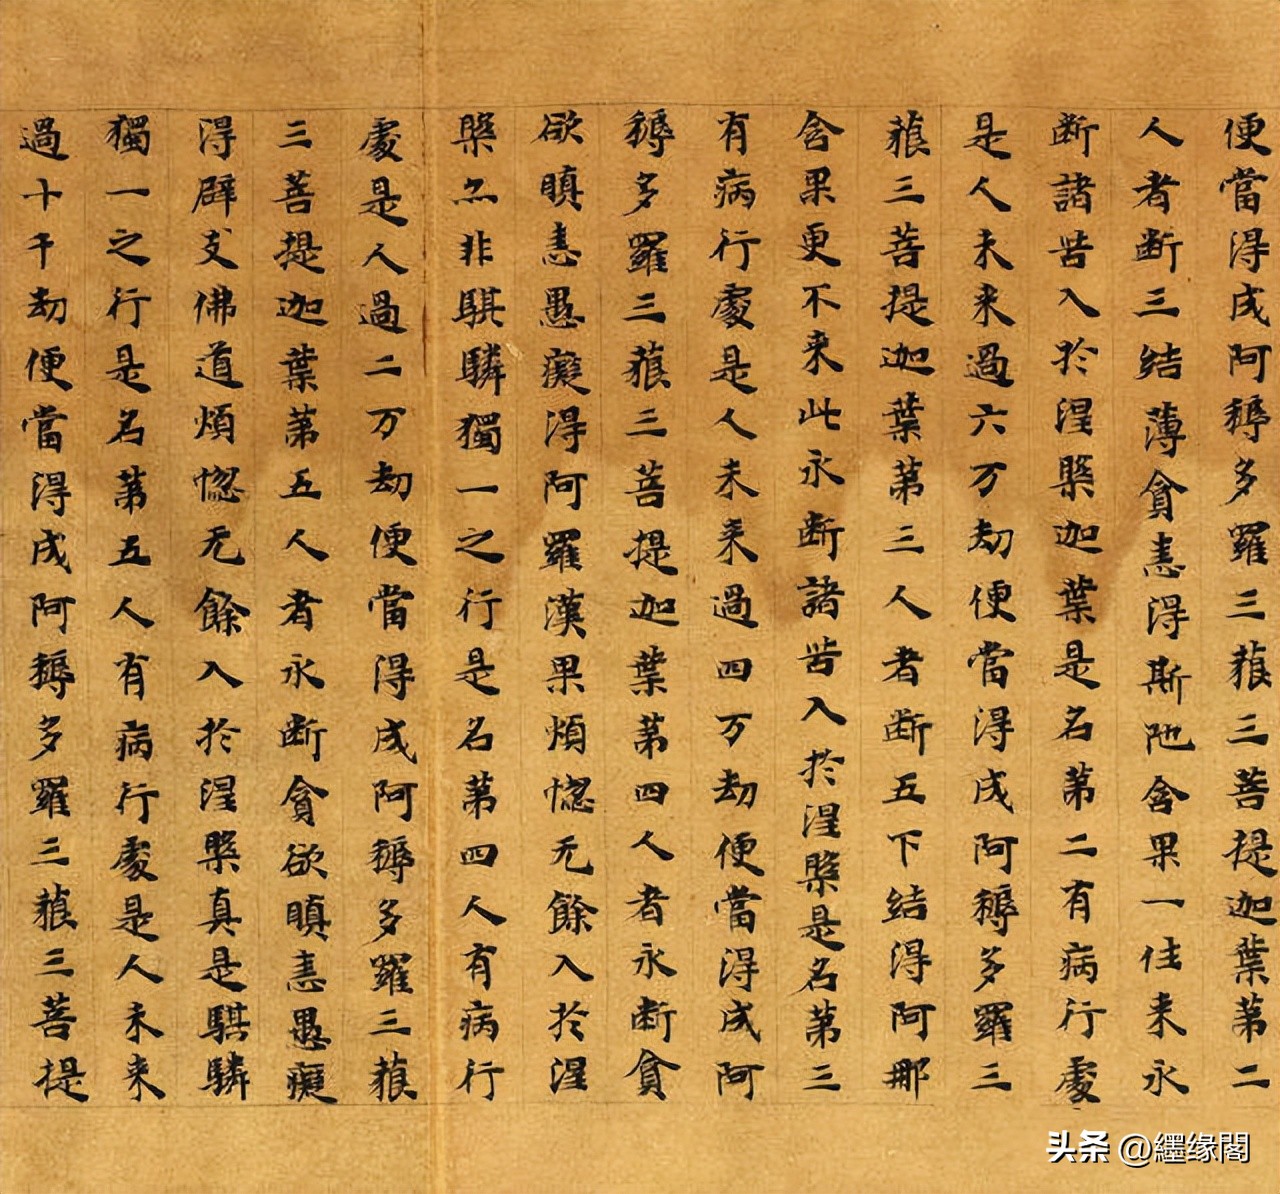 便當得成阿耨多羅三藐三菩提迦葉第二
人者断三結薄貪恚得斯陁含果一往来永
断諸苦入於涅槃迦葉是名第二有病行處
是人未来過六万劫便當得成阿耨多羅三
藐三菩提迦葉第三人者断五下結得阿那
含果更不来此永断諸苦入於涅槃是名第三
有病行處是人未来過四万劫便當得成阿
耨多羅三藐三菩提迦葉第四人者永断貪
欲瞋恚愚癡得阿羅漢果煩惚无餘入於涅
槃亦非騏驎獨一之行是名第四人有病行
處是人過二万劫便當得成阿耨多羅三藐
三菩提迦葉第五人者永断貪欲瞋恚愚癡
得辟支佛道煩惚无餘入於涅槃真是騏驎
獨一之行是名第五人有病行處是人未来
過十千劫便當得成阿耨多羅三藐三菩提
头条 @纆缘閣